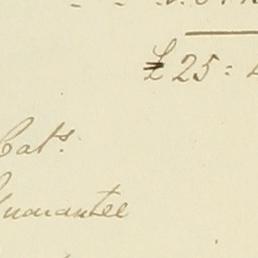 £ 25 :
Cats.
Guarantee